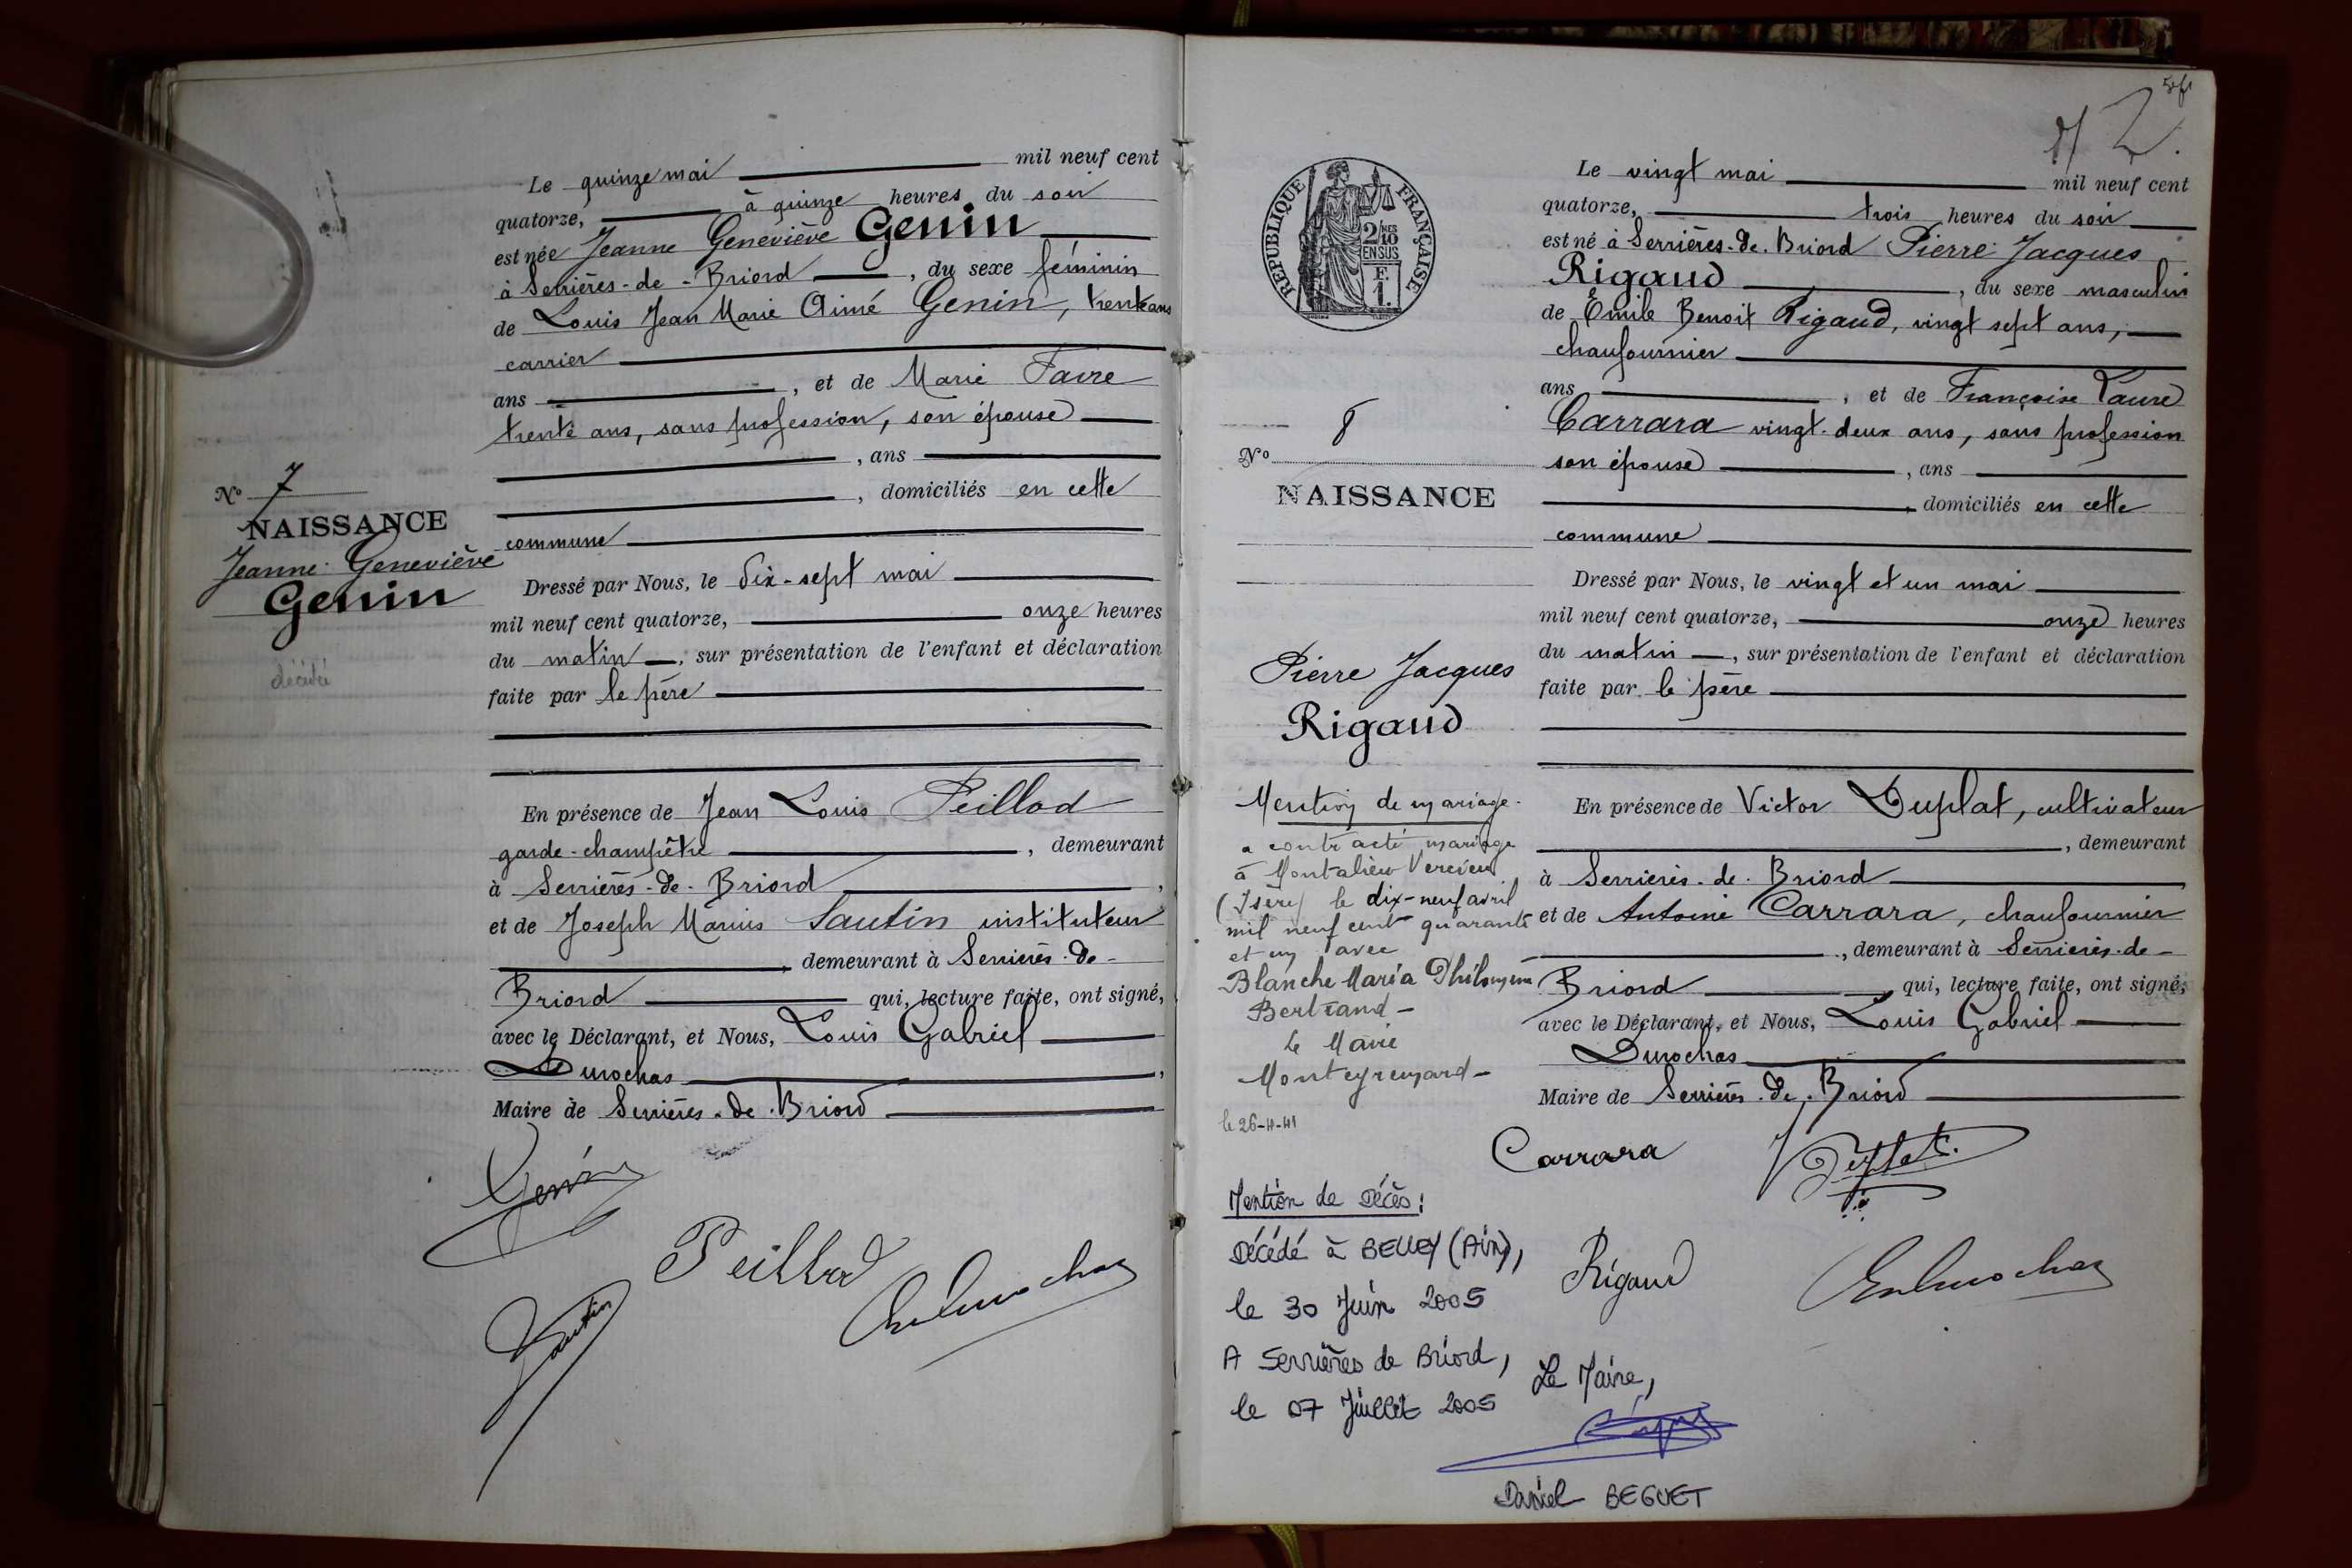 Le quinze mai mil neuf cent
quatorze, à quinze heures du soir
est née Jeanne Geneviève Genin
à Serrières-de-Briord, du sexe féminin
de Louis Jean Marie Aimé Genin, trente ans
carrier
ans, et de Marie Favre
trente ans, sans profession, son épouse
, ans
, domiciliés en cette
commune
Dressé par Nous, le dix-sept mai
mil neuf cent quatorze, onze heures
du matin, sur présentation de l'enfant et déclaration
faite par le père
En présence de Jean Louis Peillod
garde-champêtre, demeurant
à Serrières-de-Briord,
et de Joseph Marius Sautin instituteur
, demeurant à Serrières-de-
Briord qui, lecture faite, ont signé,
avec le Déclarant, et Nous, Louis Gabriel
Durochas,
Maire de Serrières-de-Briord
Nº 7
NAISSANCE
Jeanne Geneviève
Genin
décédée
Genin
Peillod
Sautin
2
REPUBLIQUE FRANÇAISE
2/10 MES
EN SUS
F.
1.
Le vingt mai mil neuf cent
quatorze, trois heures du soir
est né à Serrières-de-Briord Pierre Jacques
Rigaud, du sexe masculin
de Emile Benoit Rigaud, vingt sept ans,
chaufournier
ans, et de Françoise Laure
Carrara vingt-deux ans, sans profession
son épouse, ans
, domiciliés en cette
commune
Dressé par Nous, le vingt et un mai
mil neuf cent quatorze, onze heures
du matin, sur présentation de l'enfant et déclaration
faite par le père
En présence de Victor Duplat, cultivateur
, demeurant
à Serrières-de-Briord
et de Antoine Carrara, chaufournier
, demeurant à Serrières-de-
Briord, qui, lecture faite, ont signé,
avec le Déclarant, et Nous, Louis Gabriel
Durochas
Maire de Serrières-de-Briord
Nº 8
NAISSANCE
Pierre Jacques
Rigaud
Mention de mariage.
a contracté mariage
à Montalieu Vercieu
(Isère) le dix-neuf avril
mil neuf cent quarante
et un avec
Blanche Maria Philomène
Bertrand -
Le Maire
le 26-4-41
Carrara
Duplat
Rigaud
Mention de Décès :
Décédé à BELLEY (Ain),
le 30 Juin 2005
A Serrières de Briord,
le 07 Juillet 2005
Le Maire,
Daniel BEGUET